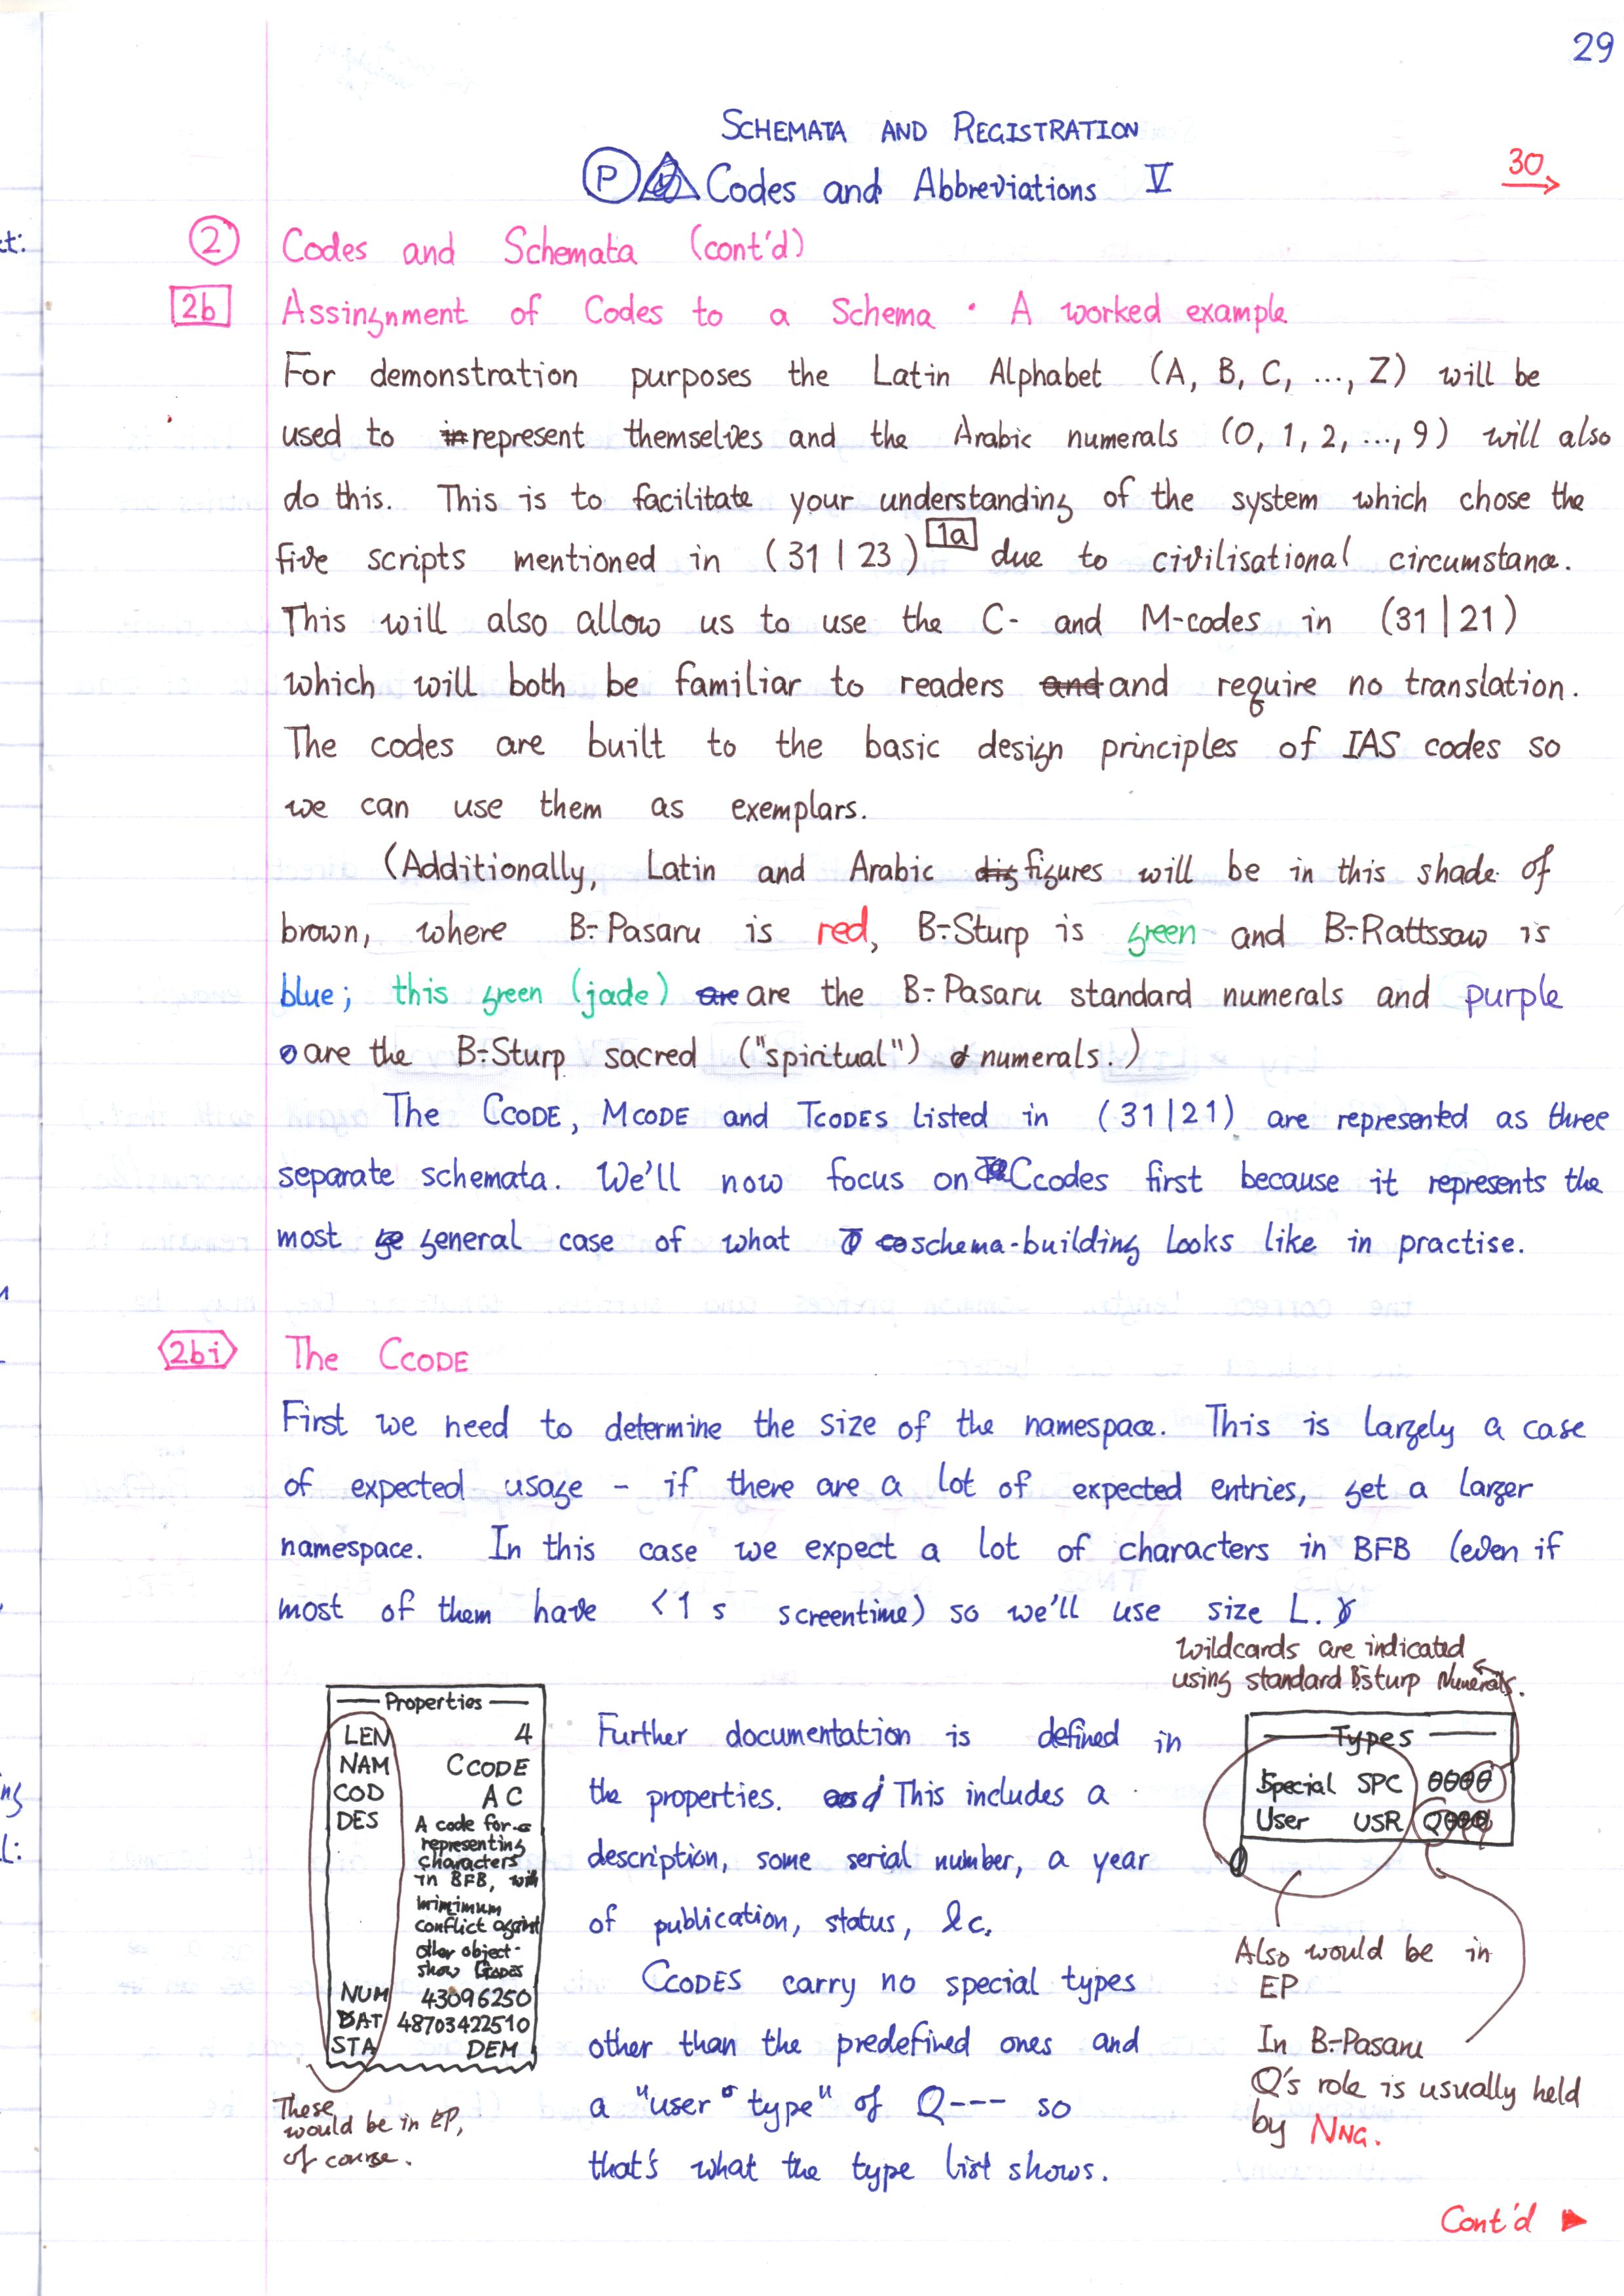 29
SCHEMATA AND REGISTRATION
P Codes and Abbreviations V
30
2 Codes and Schemata (cont'd)
2b Assingnment of Codes to a Schema · A worked example
For demonstration purposes the Latin Alphabet (A, B, C, ..., Z) will be
used to represent themselves and the Arabic numerals (0, 1, 2, ..., 9) will also
do this. This is to facilitate your understanding of the system which chose the
five scripts mentioned in (31|23) 1a due to civilisational circumstance.
This will also allow us to use the C- and M-codes in (31|21)
which will both be familiar to readers and require no translation.
The codes are built to the basic design principles of IAS codes so
we can use them as exemplars.
(Additionally, Latin and Arabic figures will be in this shade of
brown, where B-Pasaru is red, B-Sturp is green and B-Rattssaw is
blue; this green (jade) are the B-Pasaru standard numerals and purple
are the B-Sturp sacred ("spiritual") numerals.)
The CCODE, MCODE and TCODES listed in (31|21) are represented as three
separate schemata. We'll now focus on Ccodes first because it represents the
most general case of what schema-building looks like in practise.
2bi The CCODE
First we need to determine the size of the namespace. This is largely a case
of expected usage – if there are a lot of expected entries, get a larger
namespace. In this case we expect a lot of characters in BFB (even if
most of them have <1 s screentime) so we'll use size L.
Wildcards are indicated
using standard B-Sturp Numerals.
Properties
LEN 4
NAM CCODE
COD AC
DES A code for
representing
characters
in BFB, with
minimum
conflict against
other object-
show CCODES
NUM 43096250
DAT 48703422510
STA DEM
These
would be in EP,
of course.
Further documentation is defined in
the properties. This includes a
description, some serial number, a year
of publication, status, &c.
CCODES carry no special types
other than the predefined ones and
a "user type" of Q--- so
that's what the type list shows.
Types
Special SPC θθθθ
User USR Qθθθ
Also would be in
EP
In B-Pasaru
Q's role is usually held
by NNG.
Cont'd ▶